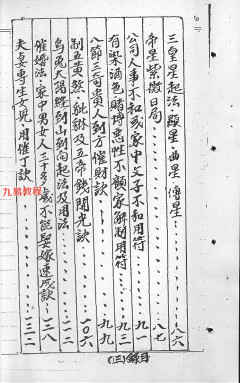 三皇星起法·顯星·曲星·傅星……八六
帝星紫微日局……八七
公司人事不和或家中父子不和用符……九一
有染酒色賭博惡性不顧家解制用符……九三
八節三奇貴人到方催財訣……九九
制五黃煞·毗訣及五帝錢開光訣……一〇六
烏兔太陽經到山到向起法及用法……一一二
催婚法·家中男女人三十多歲不能娶嫁速成訣……一二八
夫妻專生女兒用催丁訣……一三二
目錄(三)
九易教程